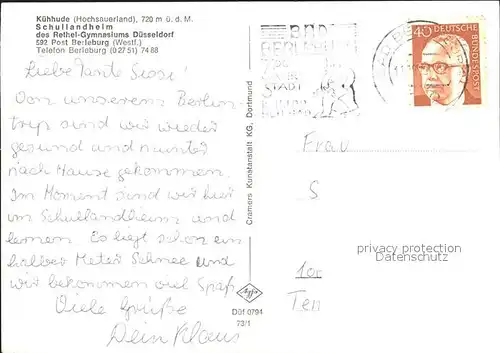 Kühhude (Hochsauerland), 720 m ü. d. M.
Schullandheim
des Rethel-Gymnasiums Düsseldorf
592 Post Berleburg (Westf.)
Telefon Berleburg (0 27 51) 74 88
Liebe Tante Sissi!
Von unserem Berlin-
trip sind wir wieder
gesund und munter
nach Hause gekommen.
Im Moment sind wir hier
im Schullandheim und
lernen. Es liegt schon ein
halber Meter Schnee und
wir bekommen viel Spaß.
Viele Grüße
Dein Klaus
Cramers Kunstanstalt KG, Dortmund
effg
Düf 0794
73/1
BAD
BERLEBURG
STADT
40
DEUTSCHE
BUNDESPOST
Frau
S
privacy protection
Datenschutz
10r
Ten